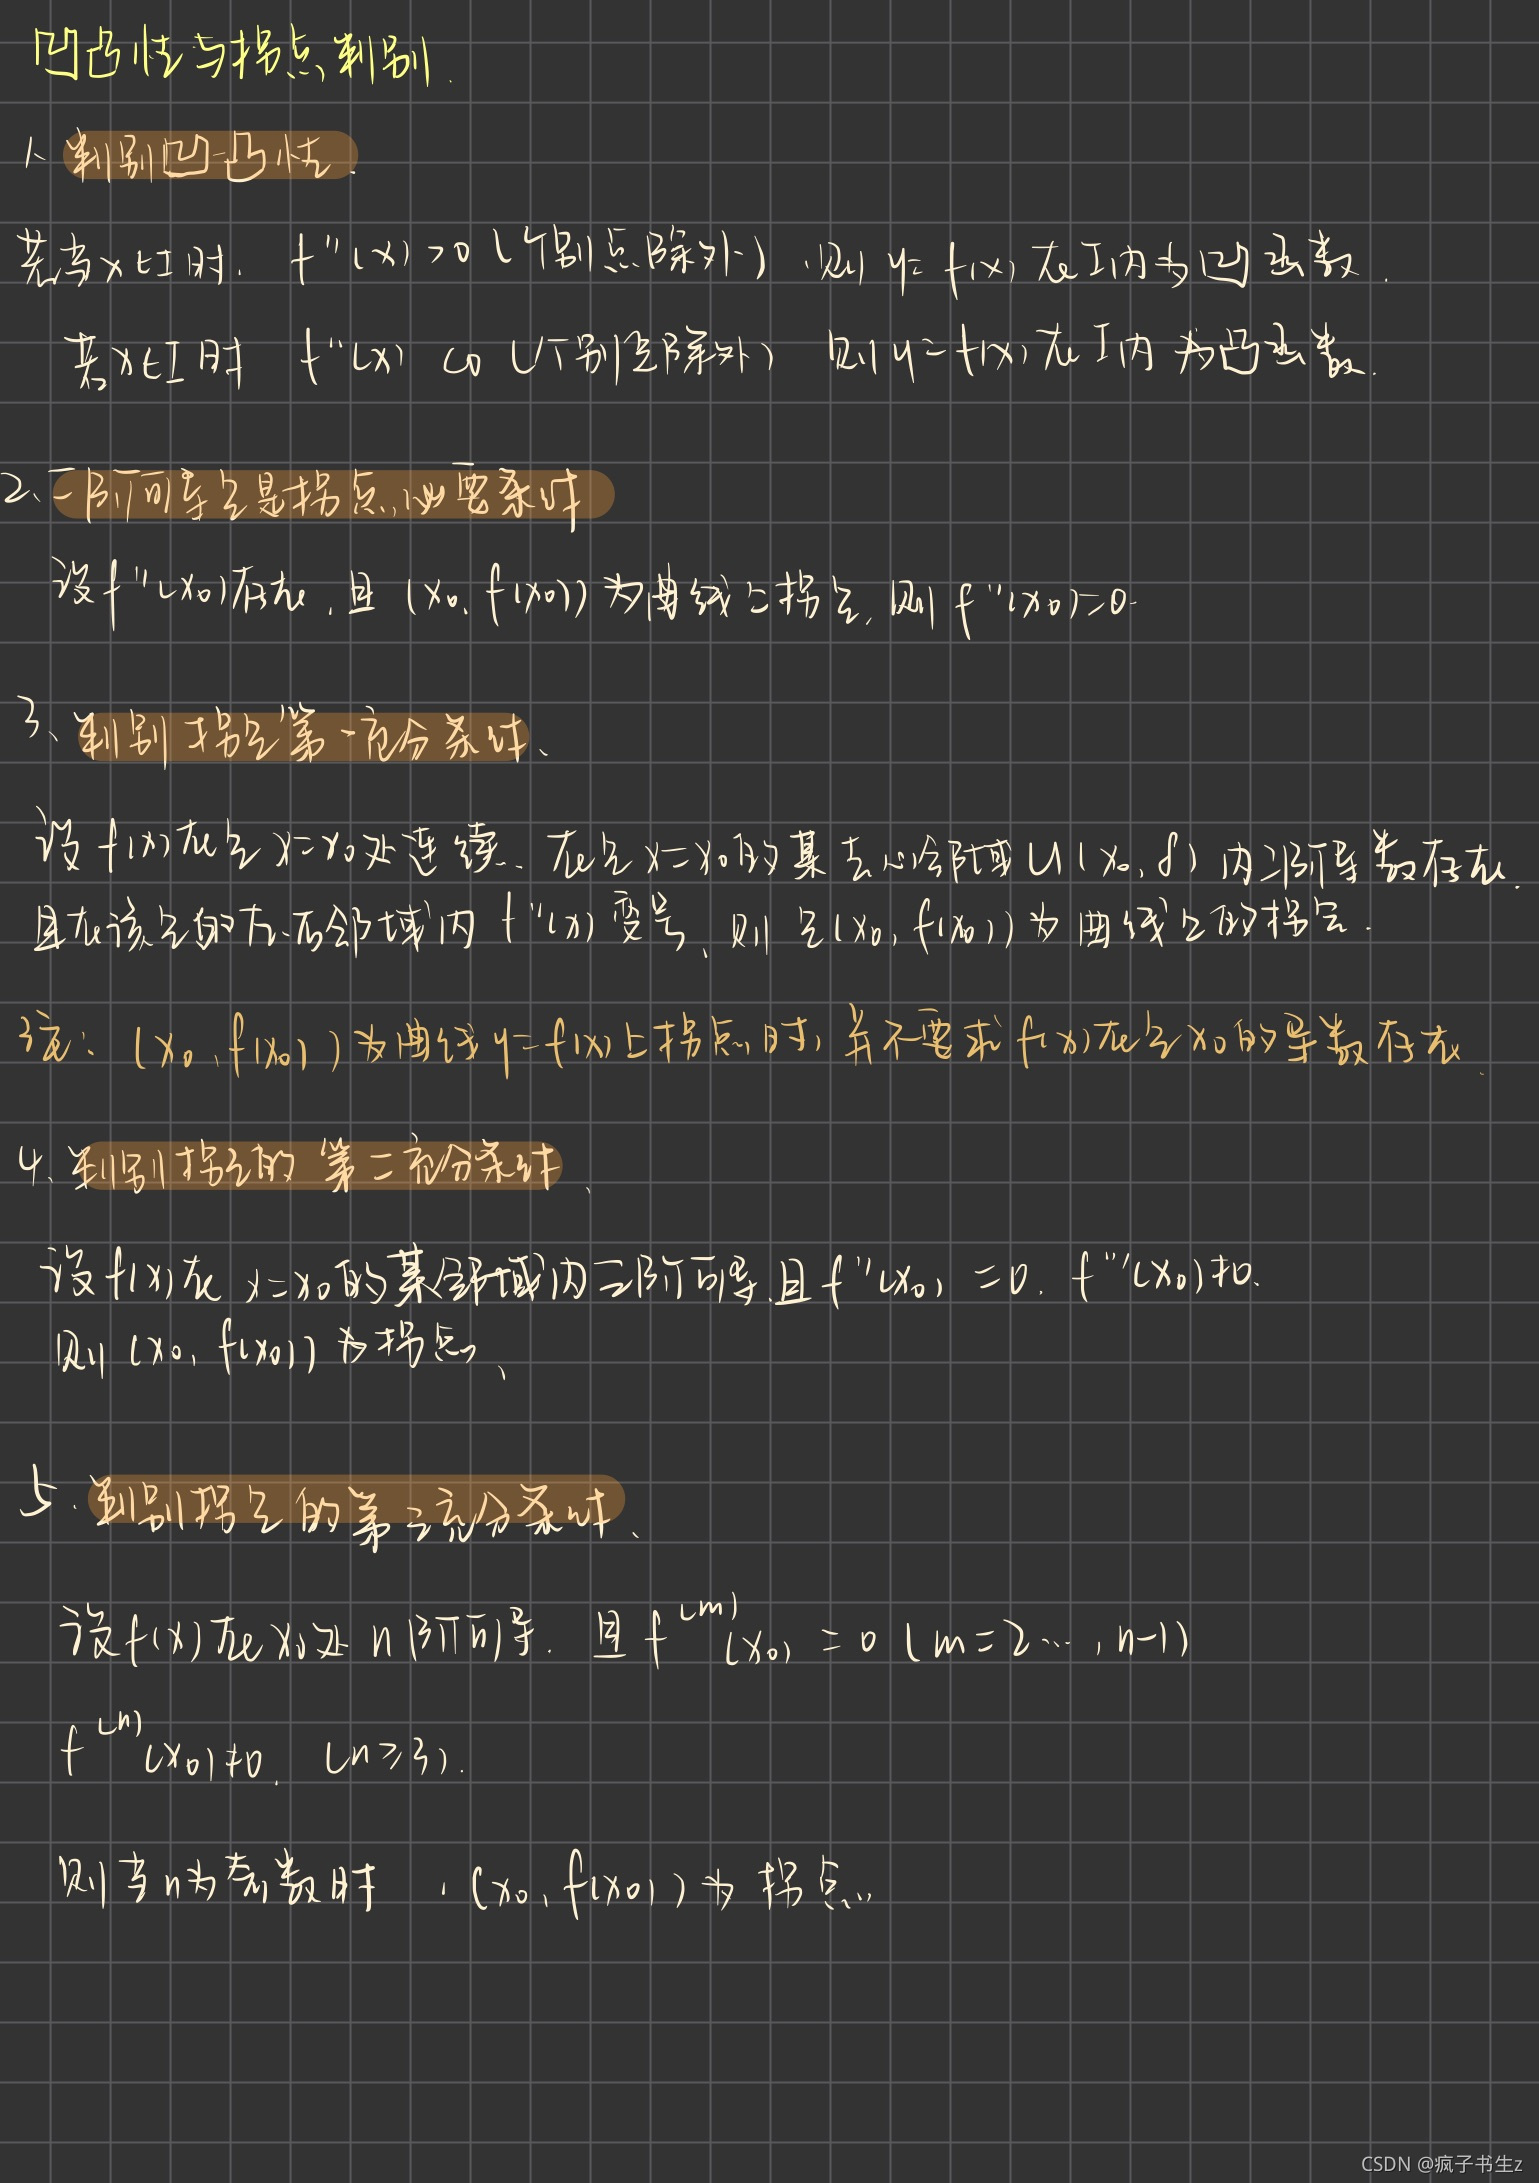 凹凸性与拐点判别.
1、判别凹凸性.
若当x∈I时. f''(x)>0(个别点除外).则y=f(x)在I内为凹函数.
若x∈I时 f''(x)<0(个别点除外) 则y=f(x)在I内为凸函数.
2、二阶可导点是拐点必要条件
设f''(x₀)存在,且(x₀,f(x₀))为曲线上拐点,则f''(x₀)=0.
3、判别拐点第一充分条件、
设f(x)在点x=x₀处连续.在点x=x₀的某去心邻域U(x₀,δ)内二阶导数存在.
且在该点的左、右邻域内f''(x)变号、则点(x₀,f(x₀))为曲线上的拐点.
注:(x₀,f(x₀))为曲线y=f(x)上拐点时,并不要求f(x)在点x₀的导数存在.
4、判别拐点的第二充分条件、
设f(x)在x=x₀的某邻域内三阶可导.且f''(x₀)=0.f'''(x₀)≠0.
则(x₀,f(x₀))为拐点、
5.判别拐点的第三充分条件、
设f(x)在x₀处n阶可导.且f⁽ᵐ⁾(x₀)=0(m=2…,n-1)
f⁽ⁿ⁾(x₀)≠0.(n≥3).
则当n为奇数时,(x₀,f(x₀))为拐点
CSDN @疯子书生z